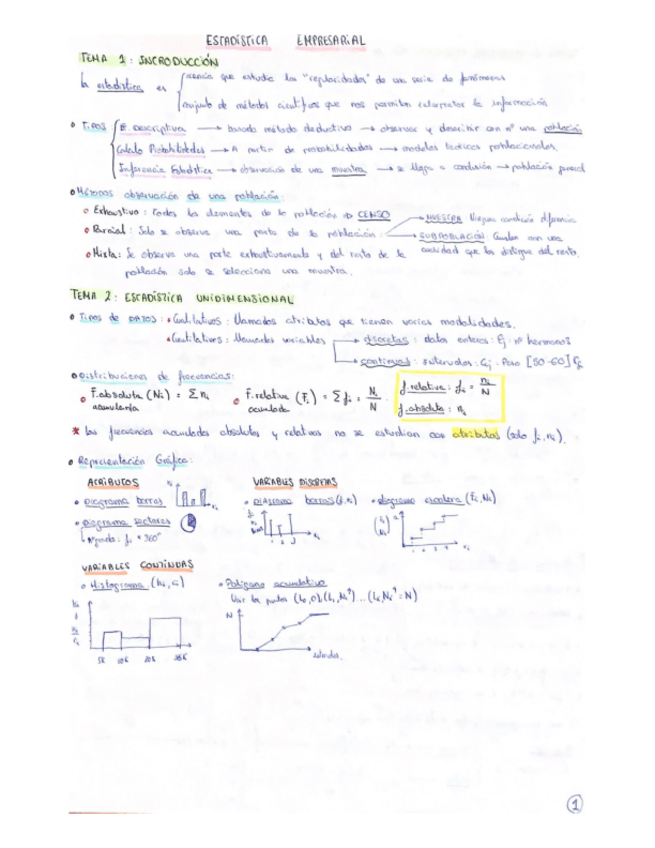 ESTADÍSTICA EMPRESARIAL
TEMA 1: INTRODUCCIÓN
la estadística es ciencia que estudia las "regularidades" de una serie de fenómenos
conjunto de métodos científicos que nos permiten interpretar la información
• TIPOS E. Descriptiva → basado método deductivo → observar y describir con nº una población
Cálculo Probabilidades → A partir de probabilidades → modelos teóricos poblacionales.
Inferencia Estadística → observación de una muestra → se llega a conclusión → población general
• Métodos observación de una población:
• Exhaustivo: Todos los elementos de la población → CENSO
→ MUESTRA: Ninguna condición diferencia
• Parcial: Solo se observa una parte de la población:
→ SUBPOBLACIÓN: Cumplen con una cualidad que los distingue del resto.
• Mixta: Se observa una parte exhaustivamente y del resto de la
población solo se selecciona una muestra.
TEMA 2: ESTADÍSTICA UNIDIMENSIONAL
• Tipos de DATOS: • Cualitativos: llamados atributos que tienen varias modalidades.
• Cuantitativos: llamados variables → discretas: datos enteros: Ej: nº hermanos
→ continuas: intervalos: Ej: Peso [50-60]
• Distribuciones de frecuencias:
• F. absoluta (Ni) = Σ ni
acumulada
• F. relativa (Fi) = Σ fi = Ni/N
acumulada
f. relativa: fi = ni/N
f. absoluta: ni
* Las frecuencias acumuladas absolutas y relativas no se estudian con atributos (solo fi, ni).
• Representación Gráfica:
ATRIBUTOS
• Diagrama barras
• Diagrama sectores
fi × 360º
VARIABLES DISCRETAS
• DIAGRAMA barras (fi, ni)
• diagrama escalera (Fi, Ni)
VARIABLES CONTINUAS
• Histograma
5k 10k 20k
• Polígono acumulativo
Unir los puntos
N
intervalos.
1